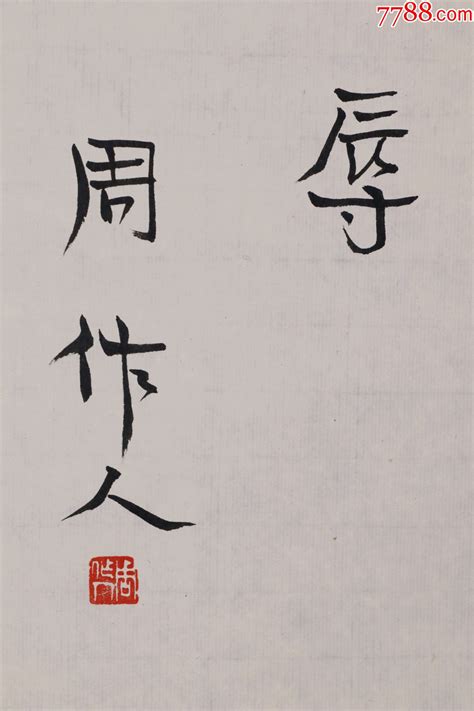 7788.com
辱
周作人